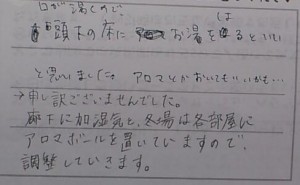 口が渇くので、
頭下の床に お湯をはるといい
と思いました。アロマとかおいてもいいかも…
→申し訳ございませんでした。
廊下に加湿気と、冬場は各部屋に
アロマボールを置いていますので、
調整していきます。